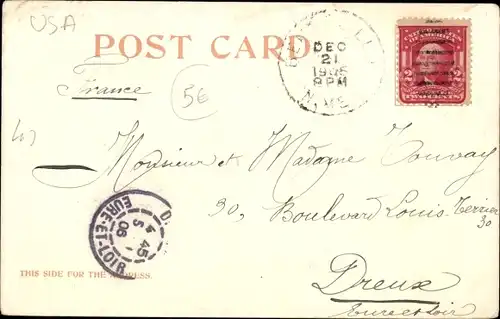 USA
POST CARD
France
5€
DEC
21
1905
8PM
N. ME
UNITED STATES
OF AMERICA
2 2
Monsieur et Madame Touvay
30, Boulevard Louis Terrier
30
Dreux
Eure et Loir
EURE-ET-LOIR
4 45
5 1
06
THIS SIDE FOR THE ADDRESS.